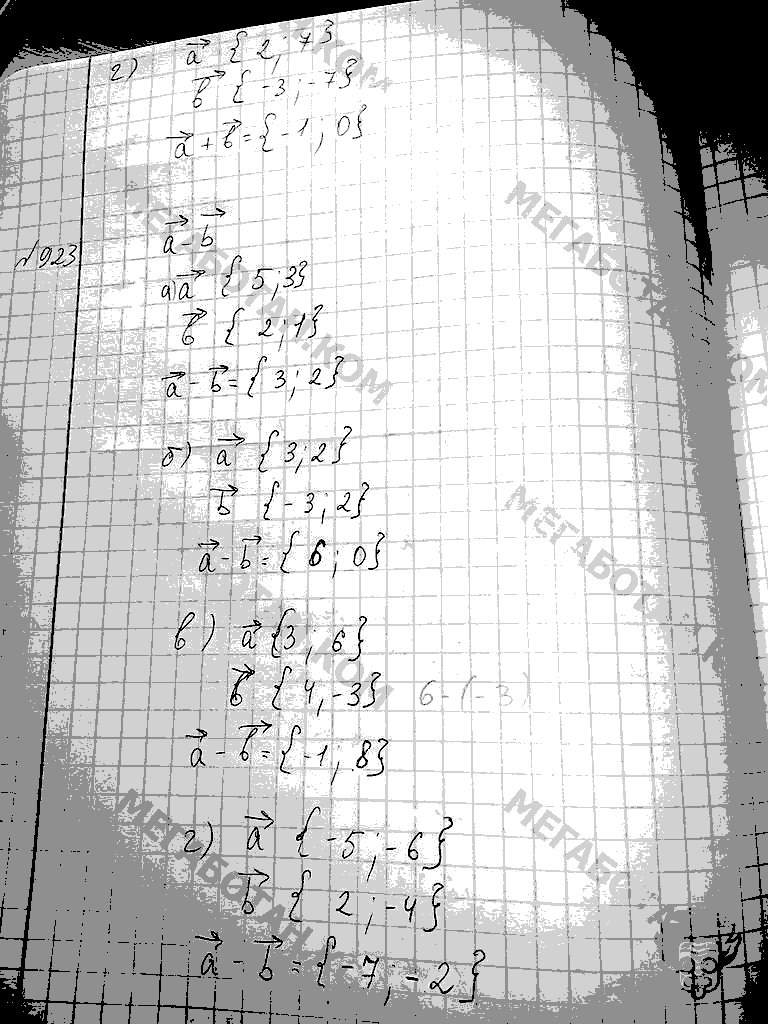 г) a {2; 7}
b {-3; -7}
a + b = {-1; 0}
№923
a - b
а) a {5; 3}
b {2; 1}
a - b = {3; 2}
б) a {3; 2}
b {-3; 2}
a - b = {6; 0}
в) a {3; 6}
b {4, -3} 6-(-3)
a - b = {-1; 8}
г) a {-5; -6}
b {2; -4}
a - b = {-7; -2}
МЕГАБОТАН.КОМ